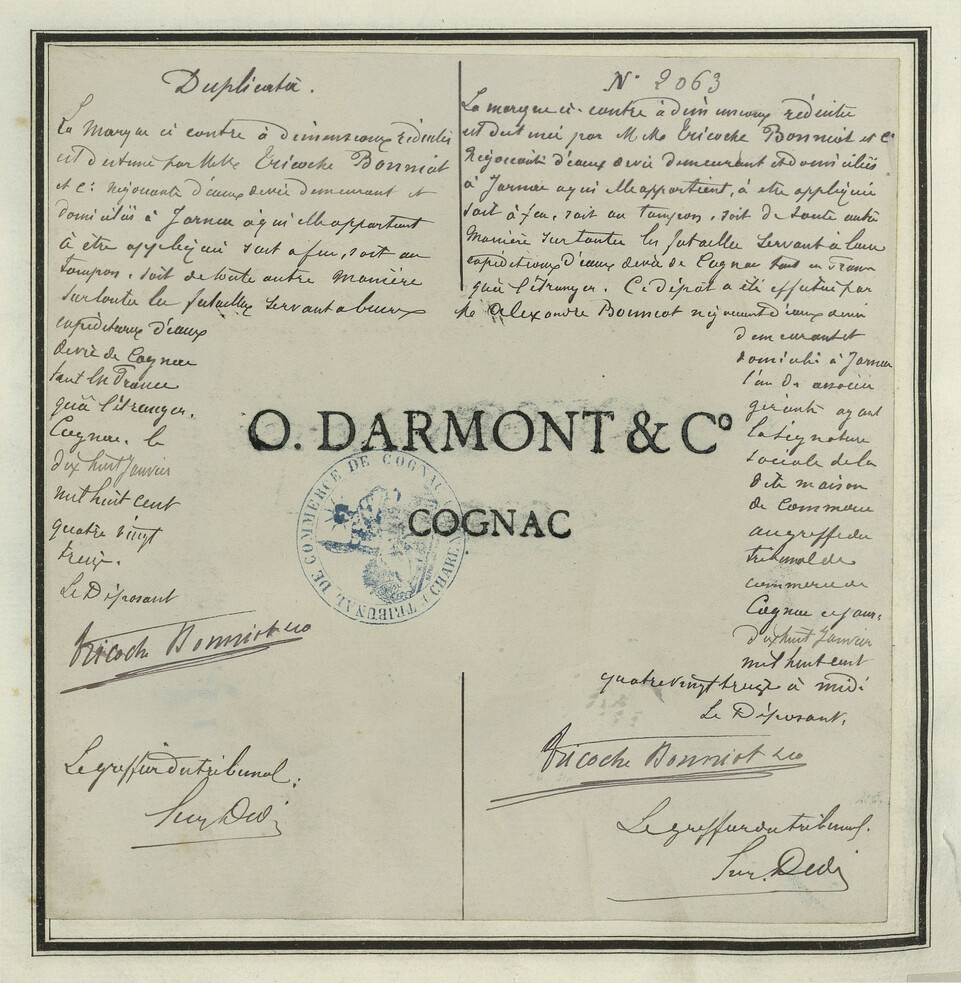 Duplicata.
La marque ci contre à dimensions réduites
est destinée par MMrs Tricoche Bonniot
et Cie négociants d'eaux de vie demeurant et
domiciliés à Jarnac à qui elle appartient
à être appliquée soit à feu, soit au
tampon, soit de toute autre manière
sur toutes les futailles servant à leurs
expéditions d'eaux
de vie de Cognac
tant en France
qu'à l'étranger.
Cognac, le
dix huit Janvier
mil huit cent
quatre vingt
treize.
Le Déposant
Tricoche Bonniot & Co
Le greffier du tribunal:
N° 2063
La marque ci-contre à dimensions réduites
est destinée par MMrs Tricoche Bonniot et Cie
négociants d'eaux de vie demeurant et domiciliés
à Jarnac à qui elle appartient, à être appliquée
soit à feu, soit au tampon, soit de toute autre
manière sur toutes les futailles servant à leurs
expéditions d'eaux de vie de Cognac tant en France
qu'à l'étranger. Ce dépôt a été effectué par
Mr Alexandre Bonniot négociant d'eaux de vie
demeurant et
domicilié à Jarnac
l'un des associés
gérants ayant
la signature
sociale de la
dite maison
de commerce
au greffe du
tribunal de
commerce de
Cognac ce jour,
dix huit Janvier
mil huit cent
quatre vingt treize à midi
Le Déposant,
Tricoche Bonniot & Co
Le greffier du tribunal.
O. DARMONT & Co
COGNAC
TRIBUNAL DE COMMERCE DE COGNAC